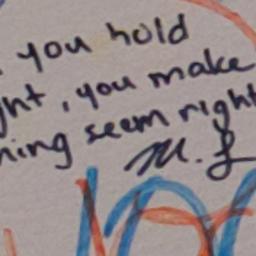 you hold
ght, you make
hing seem right
M. L